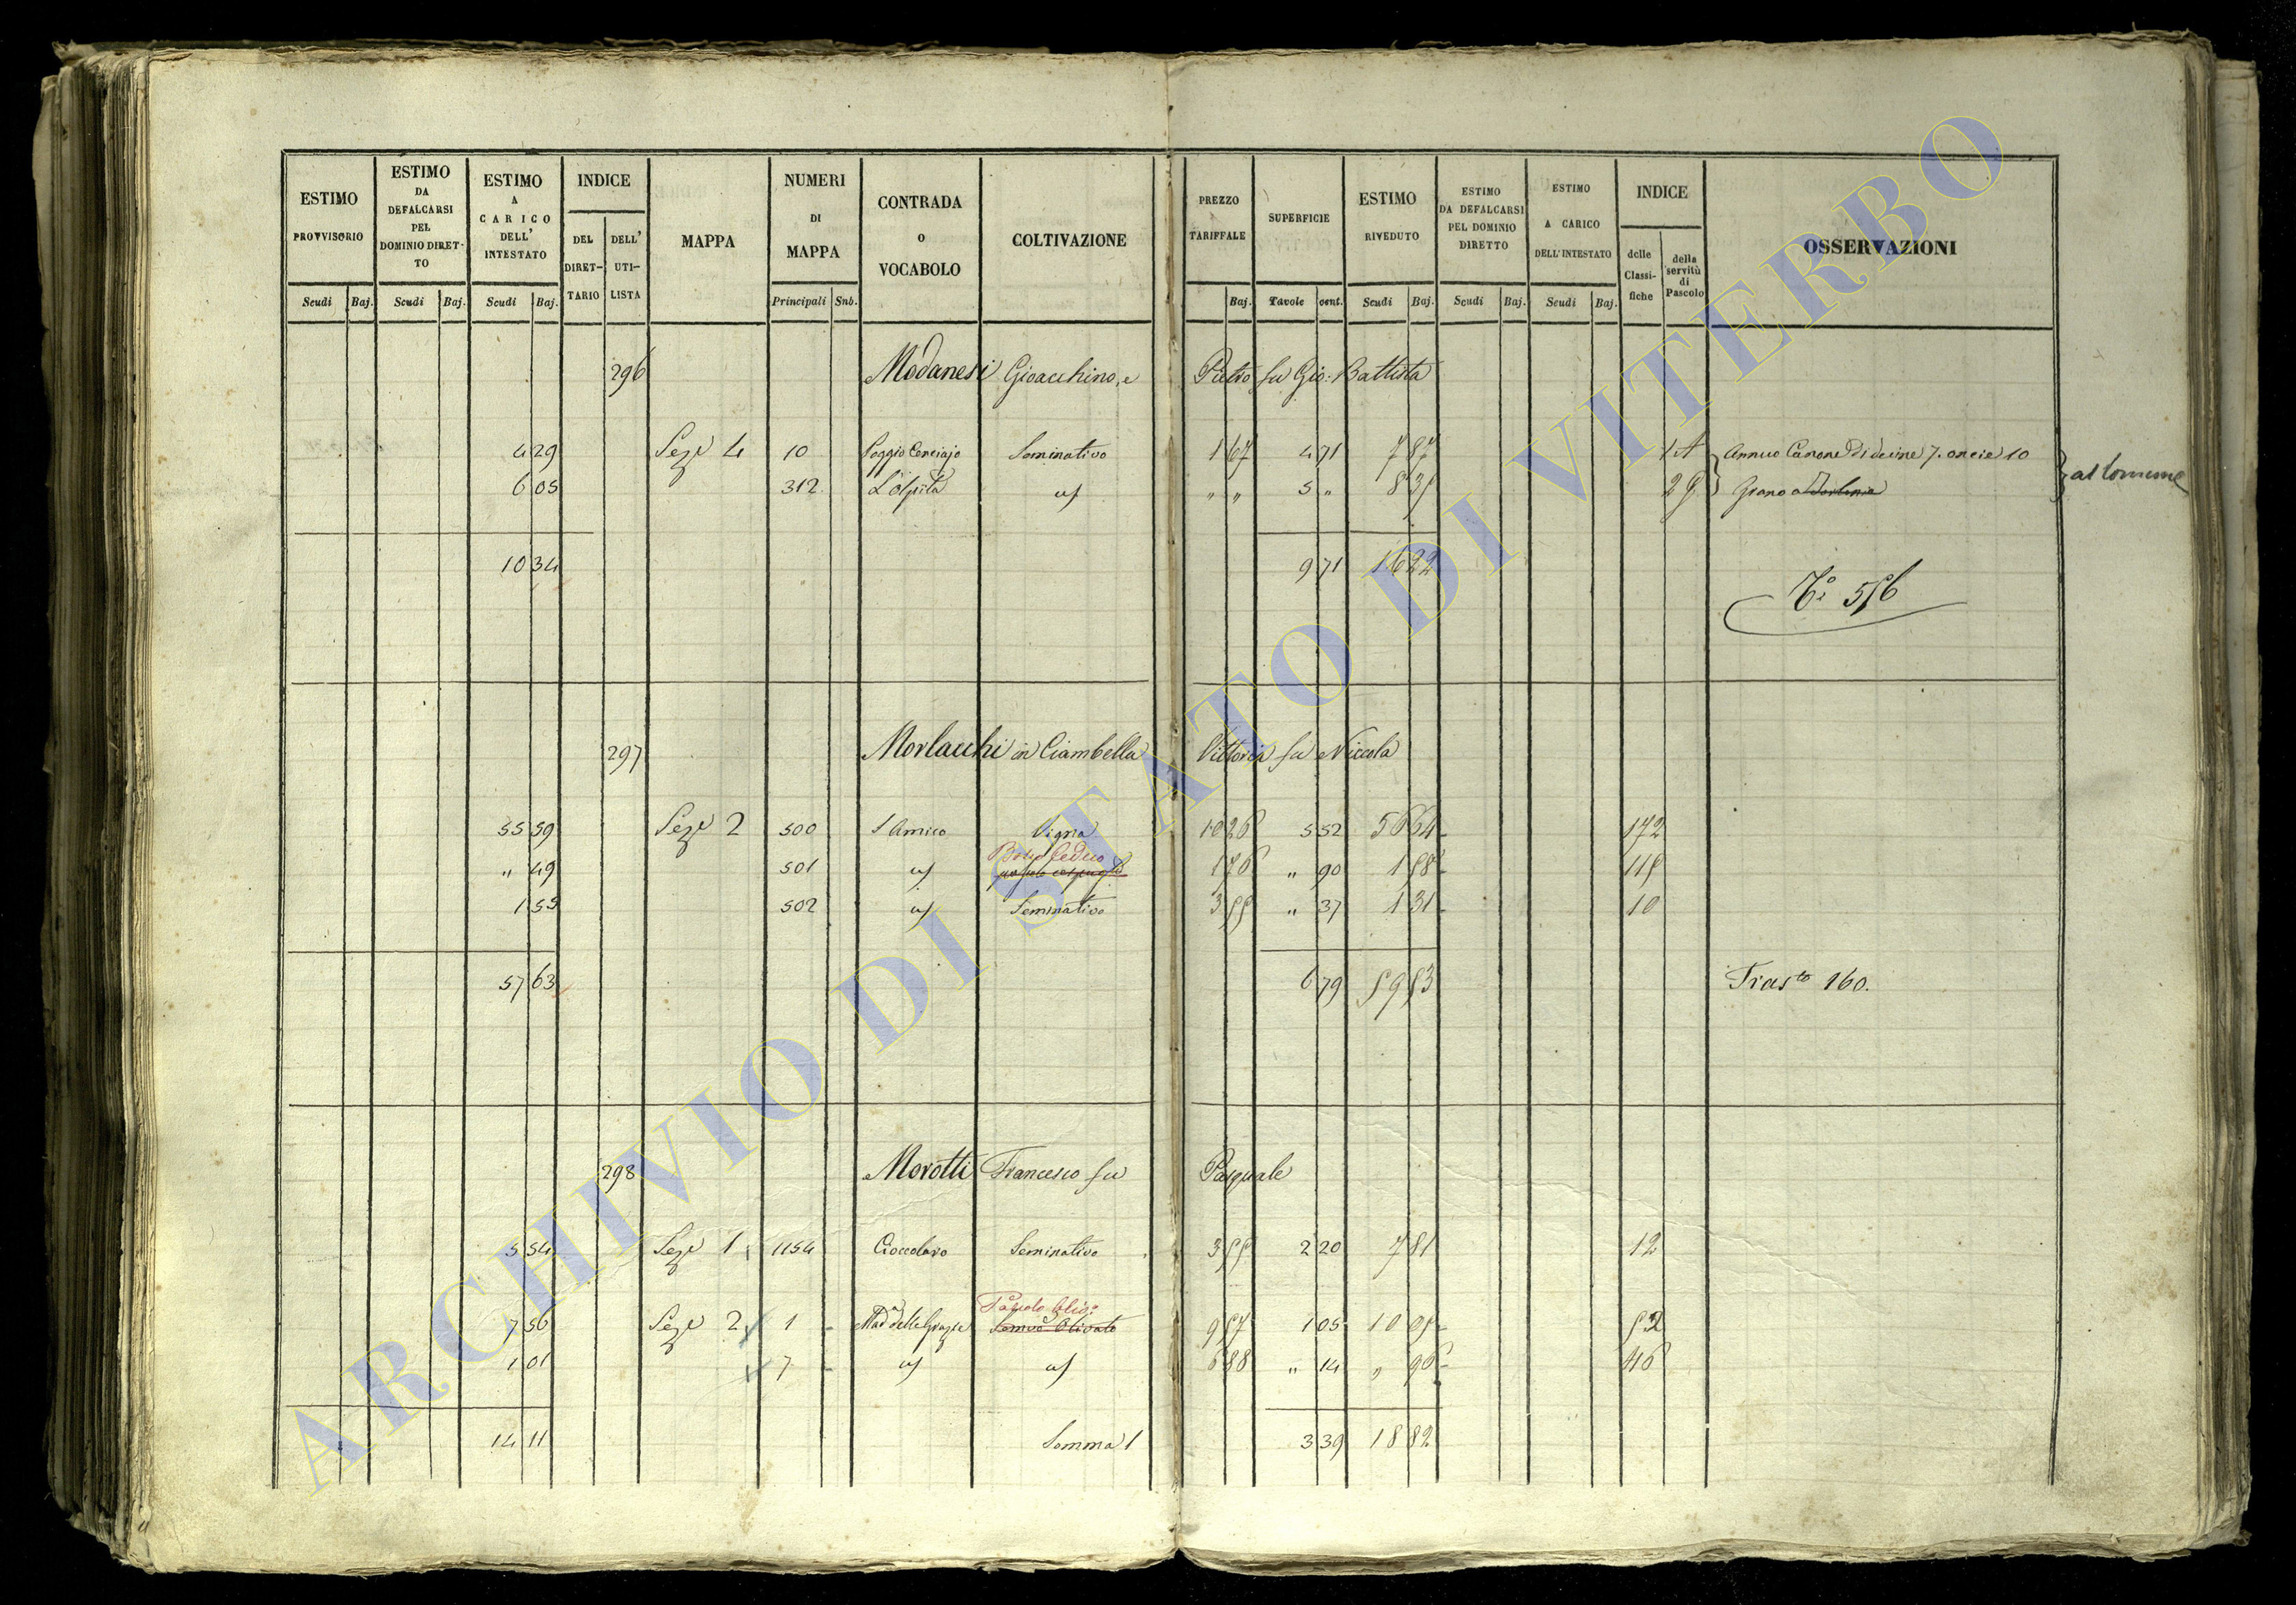 ESTIMO PROVVISORIO
ESTIMO DA DEFALCARSI PEL DOMINIO DIRETTO
ESTIMO A CARICO DELL' INTESTATO
INDICE
DEL DIRET-TARIO
DELL' UTI-LISTA
MAPPA
NUMERI DI MAPPA
CONTRADA O VOCABOLO
COLTIVAZIONE
PREZZO TARIFFALE
SUPERFICIE
ESTIMO RIVEDUTO
ESTIMO DA DEFALCARSI PEL DOMINIO DIRETTO
ESTIMO A CARICO DELL'INTESTATO
INDICE
delle Classi-fiche
della servitù di Pascolo
OSSERVAZIONI
Scudi Baj. Scudi Baj. Scudi Baj. Principali Sub. Baj. Tavole cent. Scudi Baj. Scudi Baj. Scudi Baj.
296 Modanesi Gioacchino, e Pietro fu Gio: Battista
4 29 Seze 4 10 Poggio Conciajo Seminativo 1 67 4 71 7 87 1 A Annuo Canone di decine 7. oncie 10
6 05 312 L'Ospita 5 " 8 35 2 G Grano a al Comune
10 34 9 71 16 22
To 556
297 Morlacchi in Ciambella Vittoria fu Niccola
55 59 Seze 2 500 S Amico Vigna 10 26 5 52 56 64 172
Bosco Ceduo
" 49 501 176 " 90 1 58 115
1 55 502 Seminativo 3 55 " 37 1 31 10
57 63 6 79 59 53 Trasto 160.
298 Morotti Francesco fu Pasquale
5 54 Seze 1 1154 Cioccolaro Seminativo 3 55 2 20 7 81 12
Pascolo Olivo:
7 56 Seze 2 1 Mada delle Grazie Semivo Olivato 9 57 1 05 10 05 52
1 01 7 6 88 " 14 " 96 46
14 11 Somma 1 3 39 18 82
ARCHIVIO DI STATO DI VITERBO